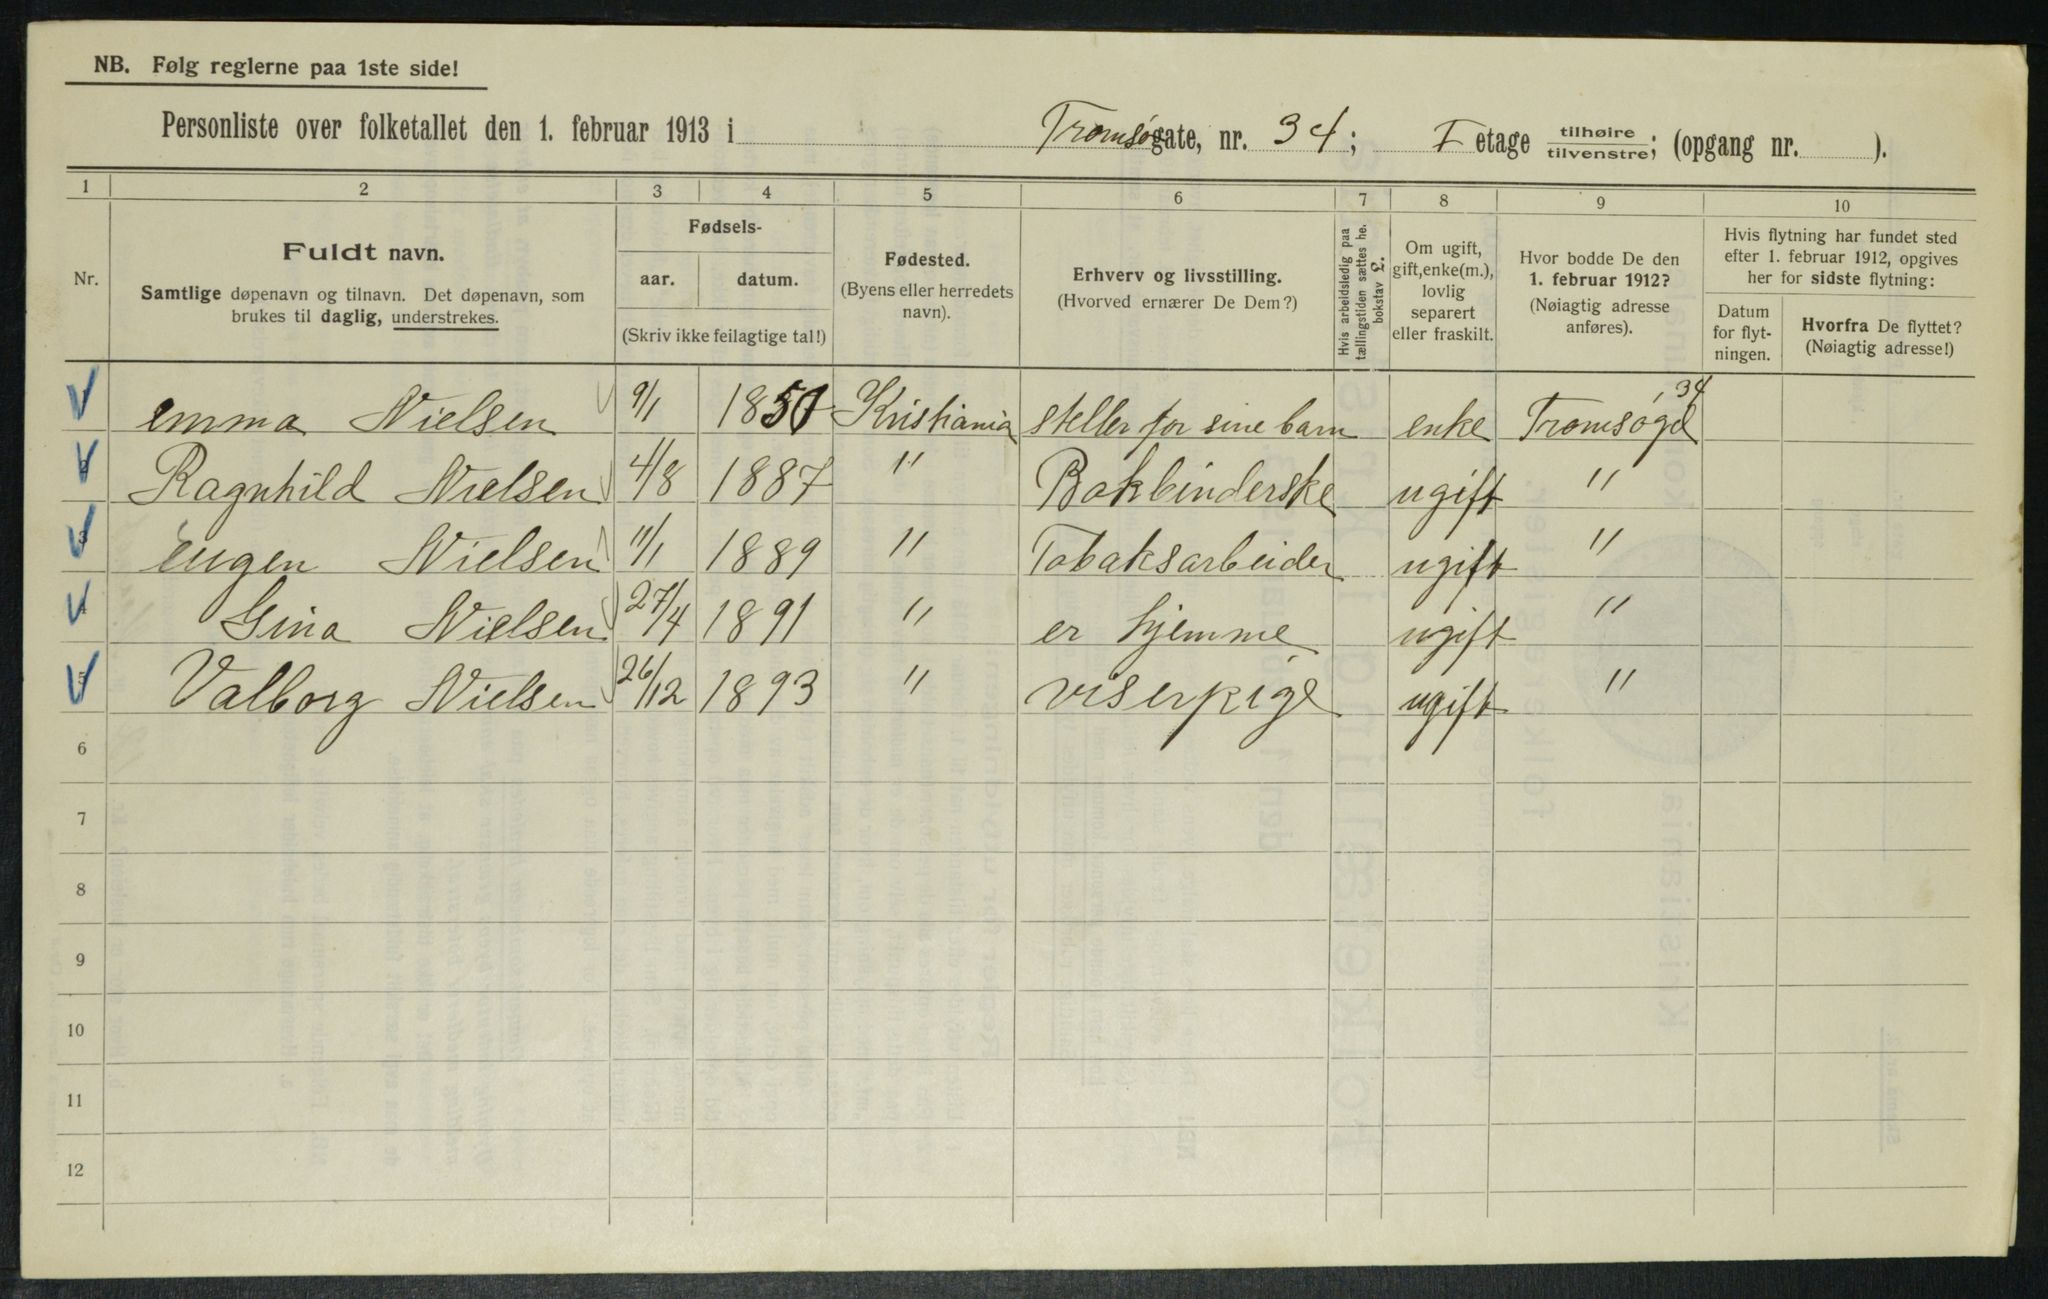 NB. Følg reglerne paa 1ste side!
Personliste over folketallet den 1. februar 1913 i Tromsøgate, nr. 34; I etage tilhøire/tilvenstre; (opgang nr. ).
1 2 3 4 5 6 7 8 9 10
Nr.
Fuldt navn.
Samtlige døpenavn og tilnavn. Det døpenavn, som
brukes til daglig, understrekes.
Fødsels-
aar. datum.
(Skriv ikke feilagtige tal!)
Fødested.
(Byens eller herredets
navn).
Erhverv og livsstilling.
(Hvorved ernærer De Dem?)
Hvis arbeidsledig paa
tællingstiden sættes he.
bokstav L.
Om ugift,
gift, enke(m.),
lovlig
separert
eller fraskilt.
Hvor bodde De den
1. februar 1912?
(Nøiagtig adresse
anføres).
Hvis flytning har fundet sted
efter 1. februar 1912, opgives
her for sidste flytning:
Datum
for flyt-
ningen.
Hvorfra De flyttet?
(Nøiagtig adresse!)
1 emma Nielsen 9/1 Kristiania steller for sine barn enke Tromsøgd 34
2 Ragnhild Nielsen 4/8 1887 " Bokbinderske ugift "
3 eugen Nielsen 11/1 1889 " Tobaksarbeider ugift "
4 Gina Nielsen 27/4 1891 " er hjemme ugift "
5 Valborg Nielsen 26/12 1893 " viserpige ugift "
6
7
8
9
10
11
12